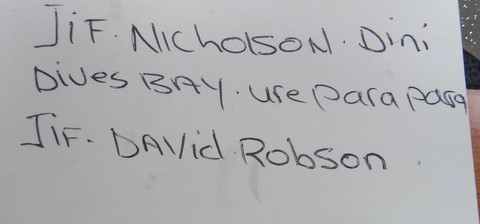 JiF. NicholsoN. Dini
Dives BAY. ure para para
JiF. DAVid Robson